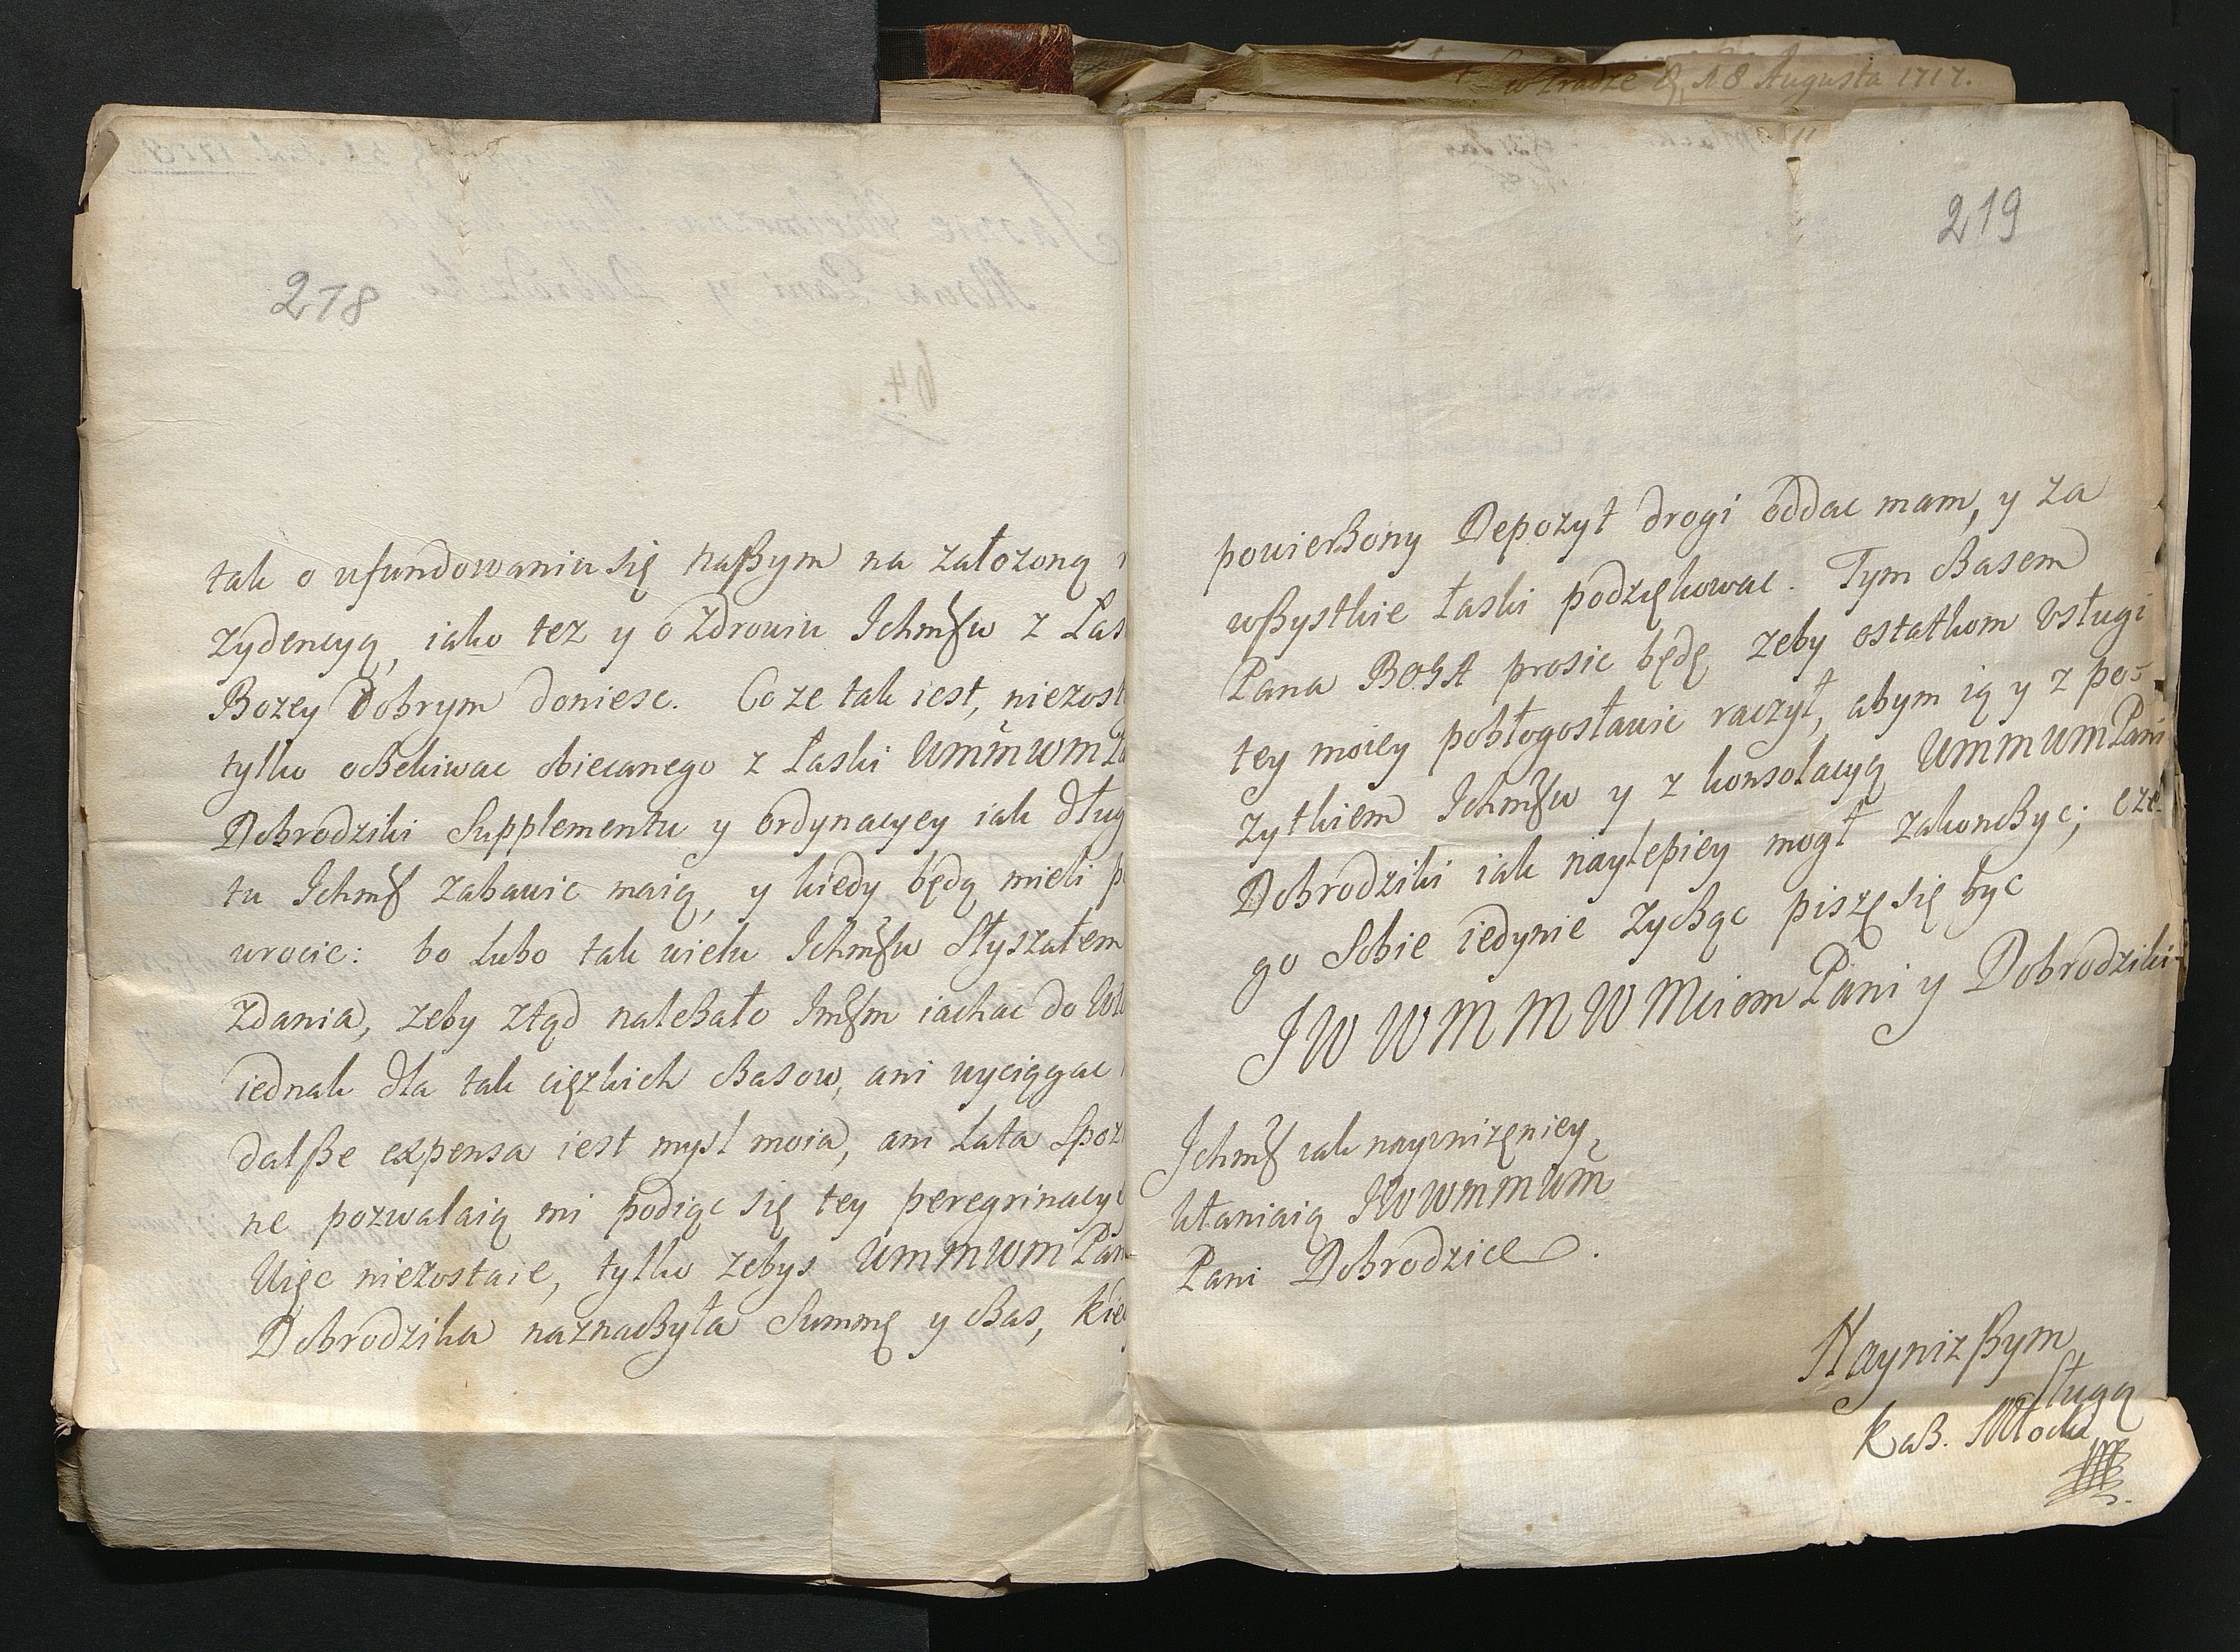 w Pradze d. 18 Augusta 1717.
218
tak o ufundowaniu się naszym na założoną
zydencyą, iako tez y o Zdrowiu Ichmściw z Łas
Bozey Dobrym doniesc. Co ze tak iest, niezost
tylko oczekiwac obiecanego z Łaski WMMWM Pa
Dobrodziki Supplementu y ordynacyey iak dług
tu Ichmść zabawic maią, y kiedy będą mieli p
wrocic: bo Lubo tak wielu Ichmściw Słyszałem
Zdania, zeby ztąd należało Imściom iachac do
iednak dla tak cięzkich czasow, ani wyciągac
dalsze expensa iest mysl moia, ani Lata Spoz
ne pozwalaią mi podiąc się tey peregrinacy
Więc niezostaie, tylko zebys WMMWM Pan
Dobrodzika naznaczyła Summę y czas, kie
219
powierzony Depozyt drogi oddac mam, y za
wszystkie łaski podziękowac. Tym czasem
Pana BOGA prosic będę zeby ostatkom Usługi
tey moiey pobłogosławic raczył, abym ią y z po-
zytkiem Ichmściw y z konsolacyą WMMWM Pani
Dobrodziki iak naylepiey mogł zakonczyc; cze-
go Sobie iedynie zycząc piszę się byc
J W W M M W Mciom Pani y Dobrodziki
Ichmść iak nayunizęniey
kłaniaią JWWMMWM
Pani Dobrodzice.
Nayniz szym
sługą
Kasz. Młocki